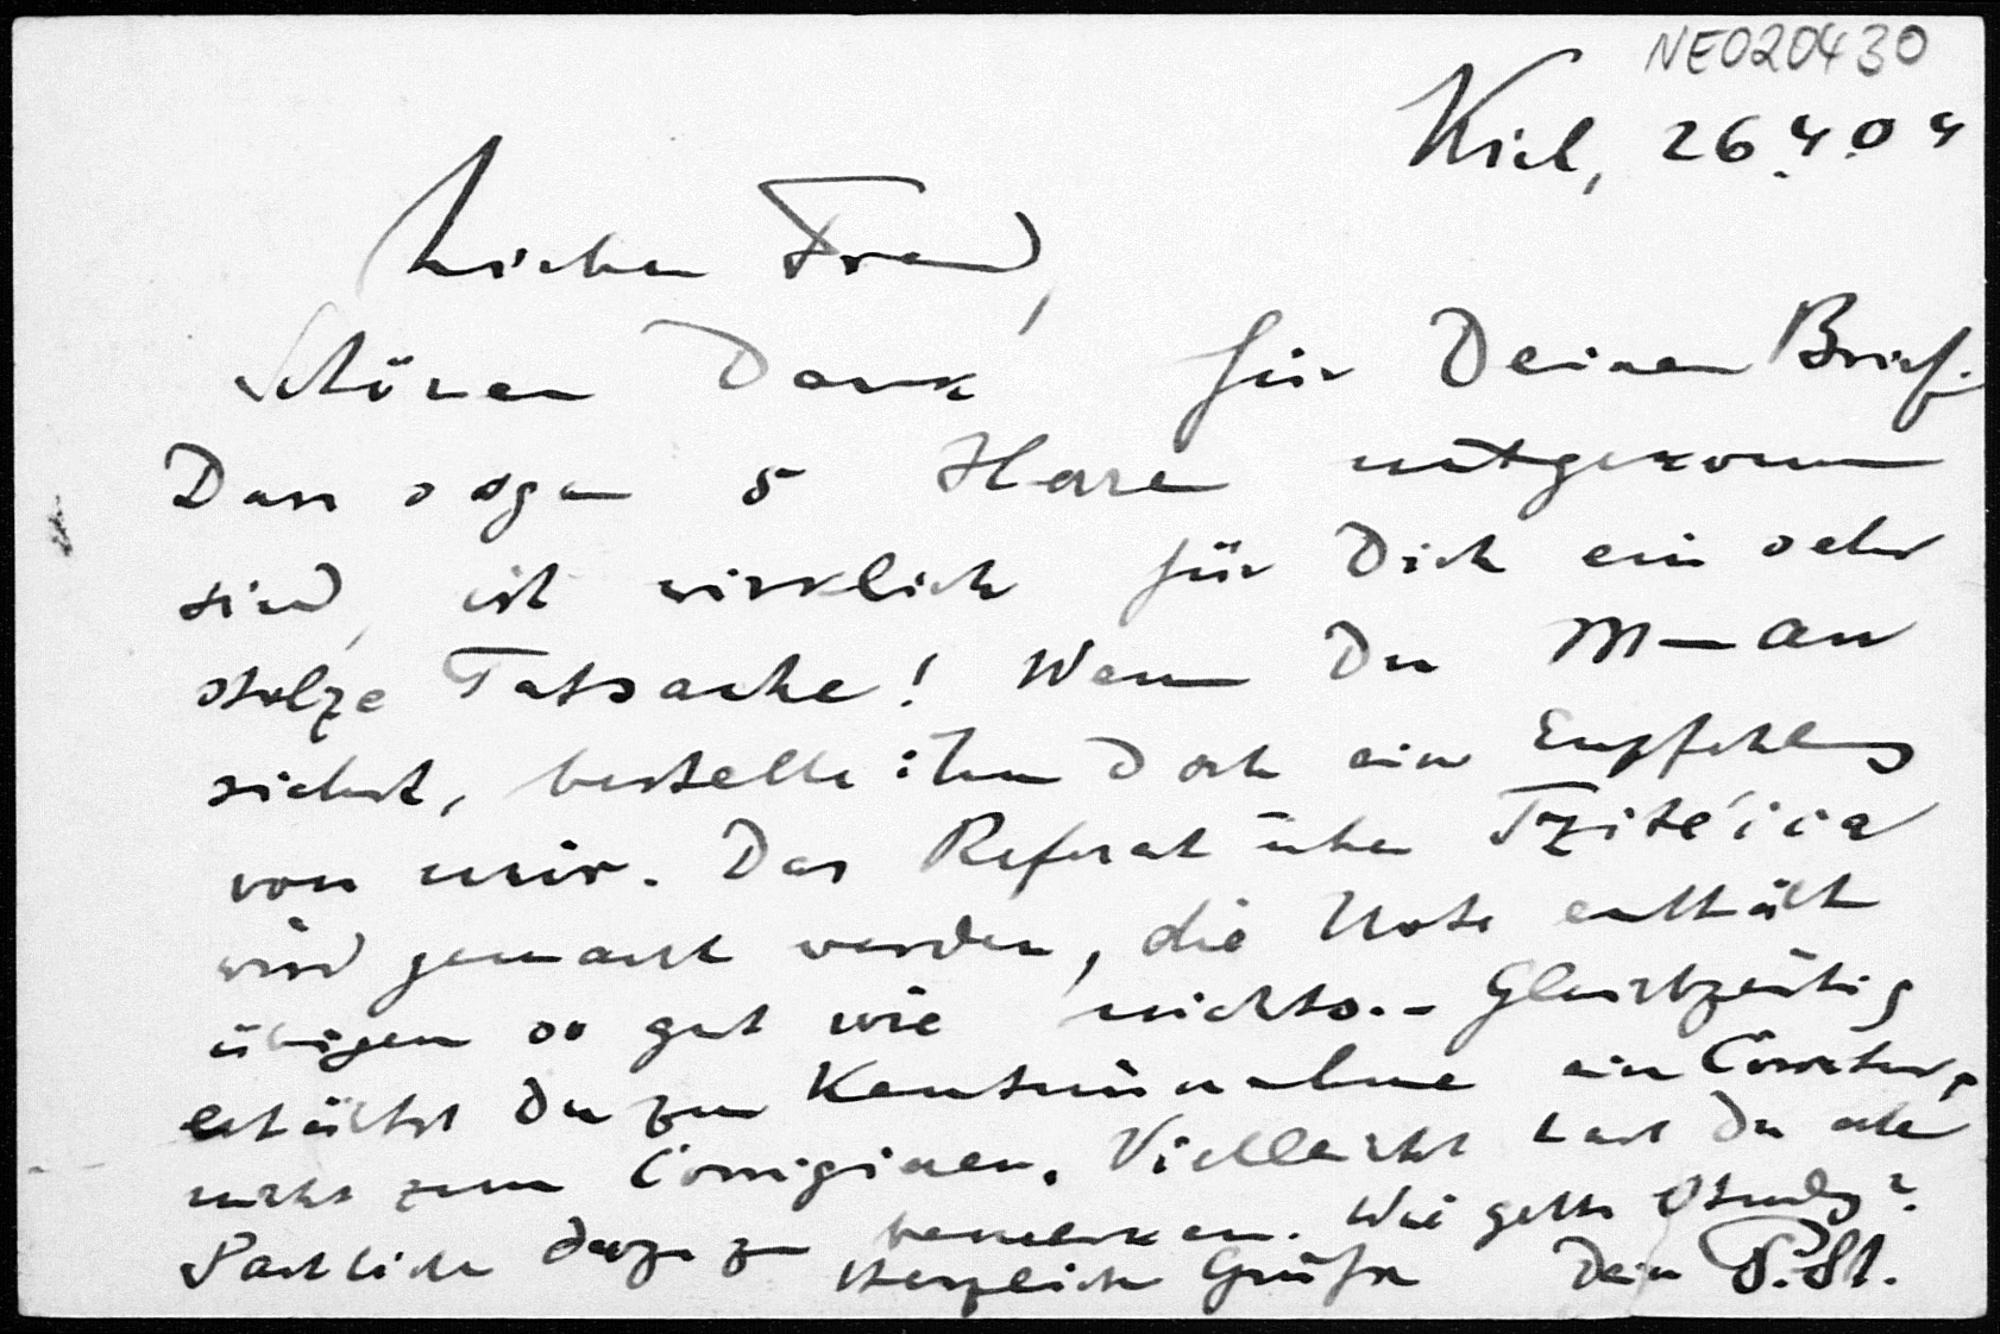 NE020430
Kiel, 26.4.04
Lieber Freund,
Schönen Dank für Deinen Brief.
Dass sogar 5 Herren mitgekommen
sind, ist wirklich für Dich ein sehr
stolze Tatsache! Wenn Du
siehst, bestelle ihm doch eine Empfehlung
von mir. Das Referat über Tzitéica
wird gemacht werden, die Note enthält
übrigens so gut wie nichts. - Gleichzeitig
erhältst Du zur Kenntnisnahme eine Correctur,
nicht zum Corrigieren. Vielleicht hast Du aber
Sachliches dazu zu bemerken. Wie gehts Study?
Herzliche Grüße Dein P. St.